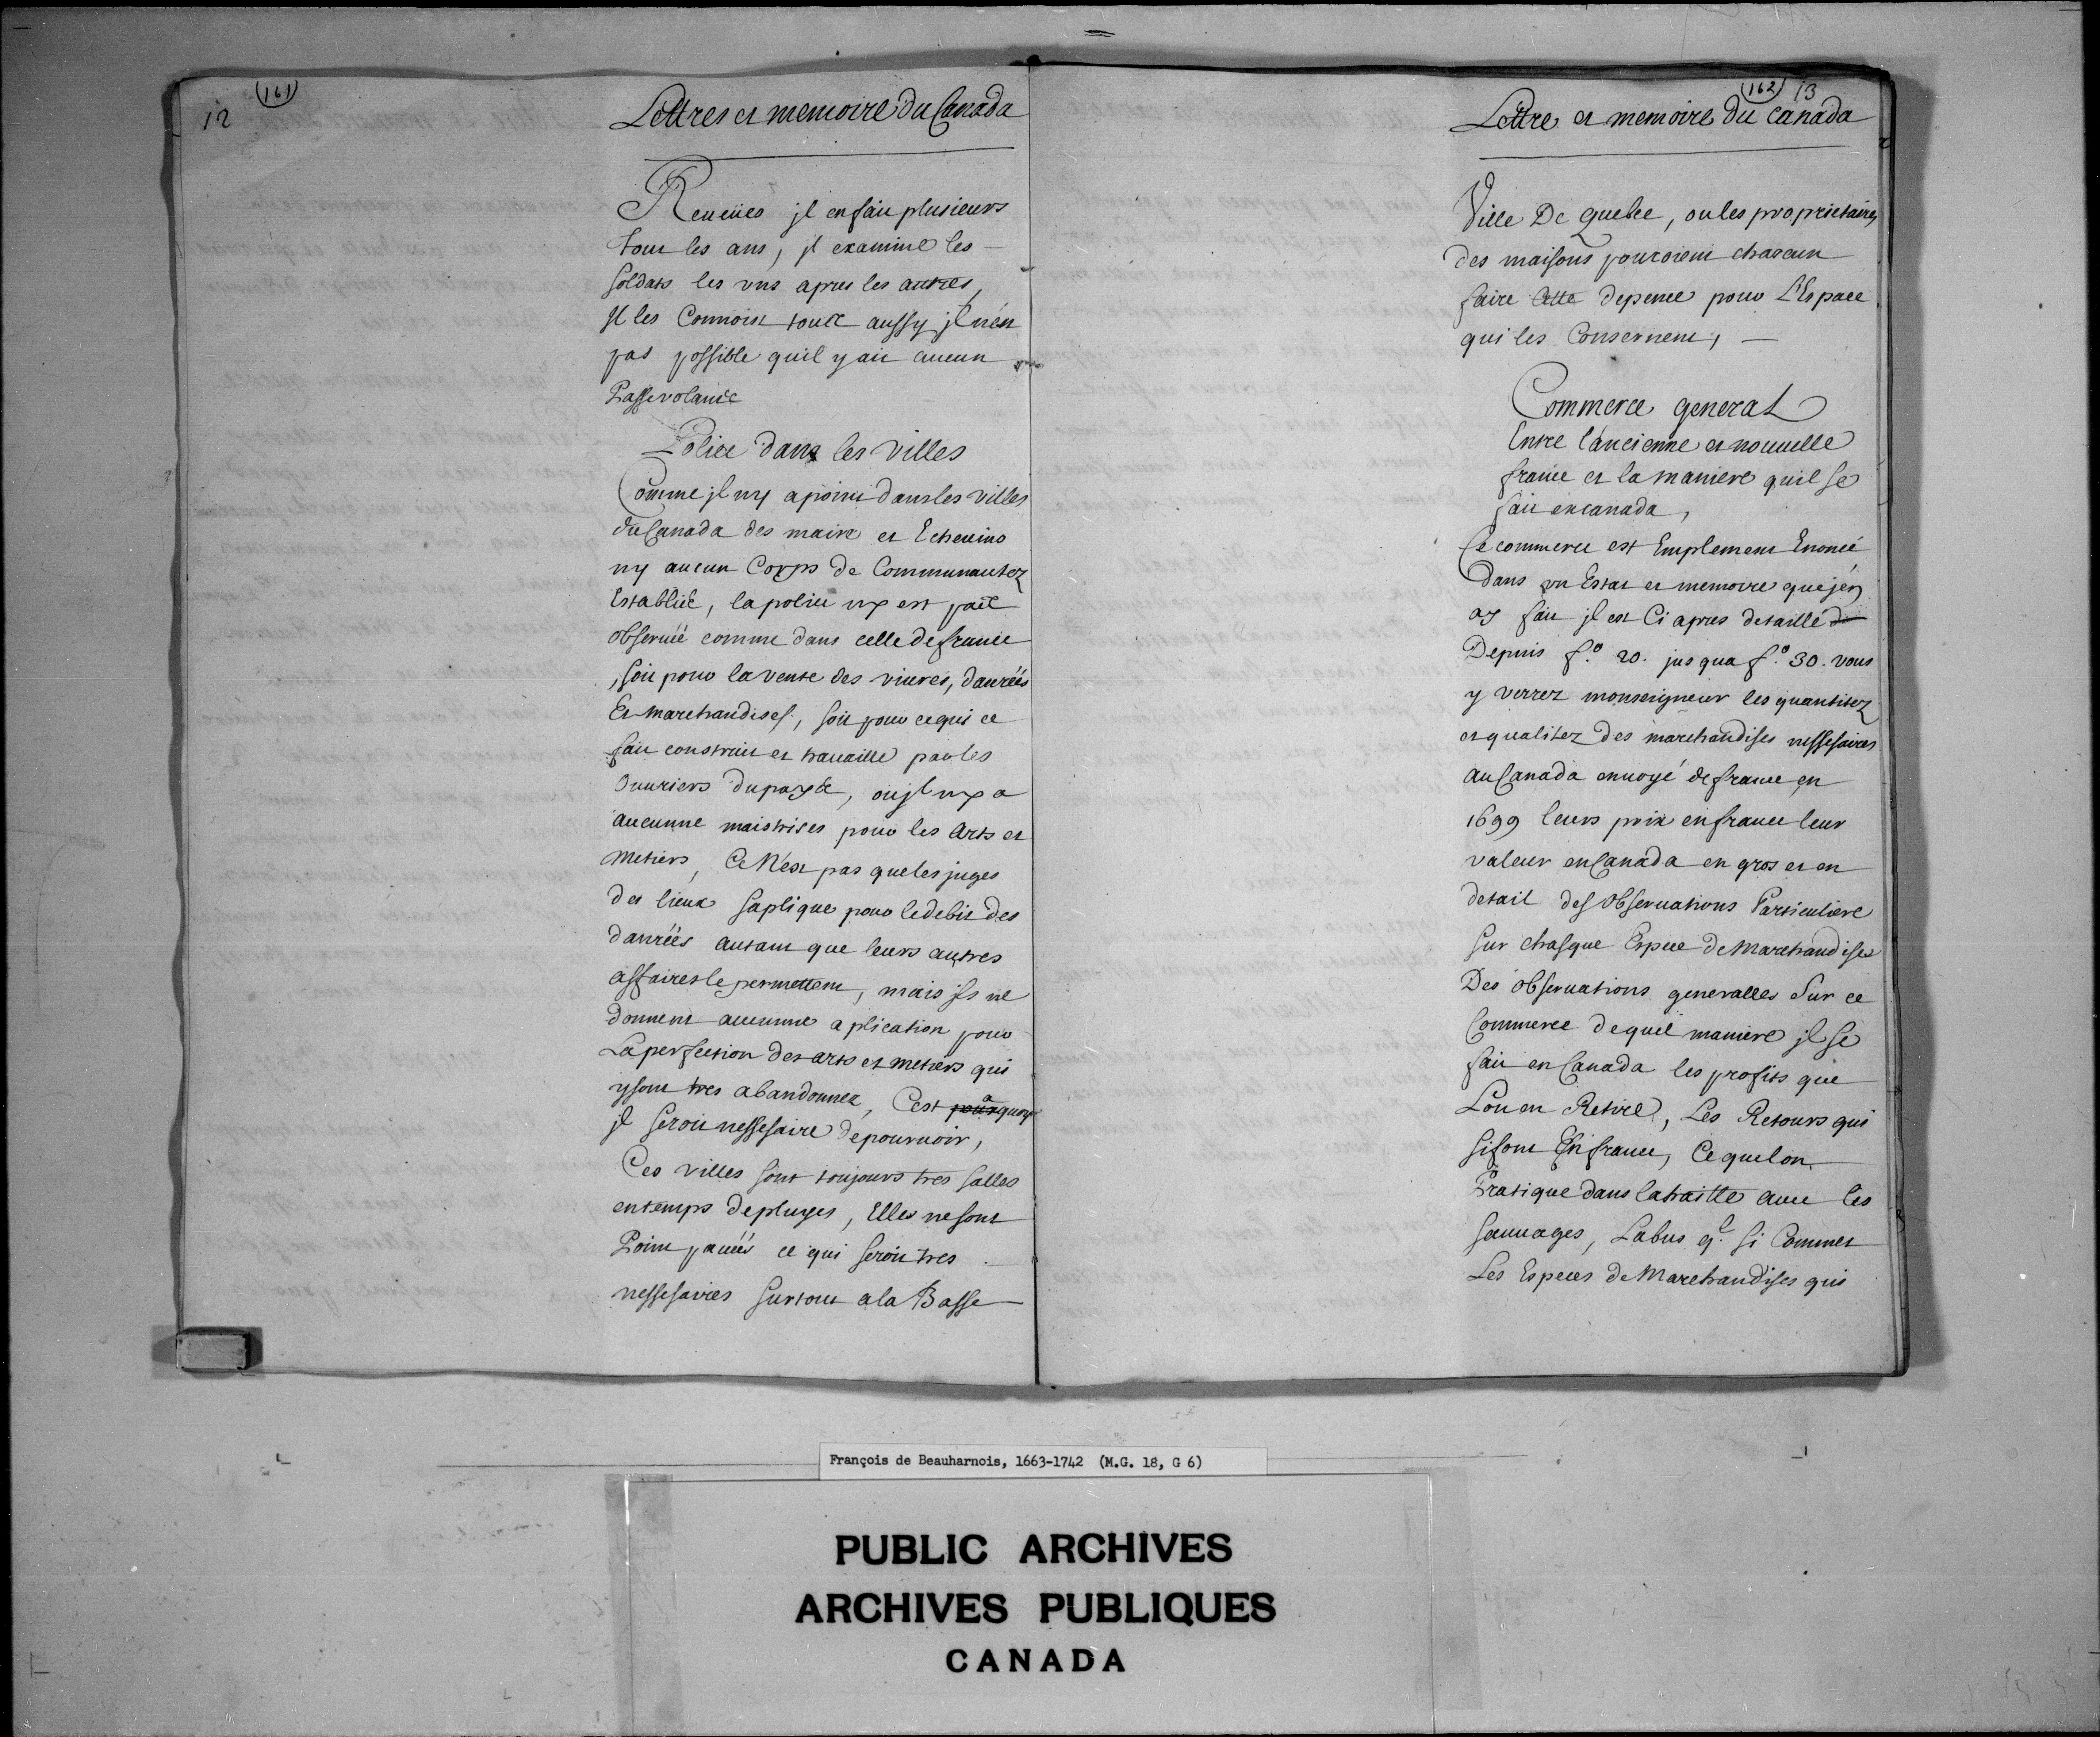 12
161
Lettres et memoire Du Canada
Reueües jl en fait plusieurs
tous les ans, jl examine les
soldats les uns apres les autres,
Jl les Connoist tous aussy jl n'est
pas possible quil y ait aucun
Passevolants
Police dans les Villes
Comme jl ny a point dans les villes
du Canada des maire et Echeuins
ny aucun Corps de Communautez
Establie, la police ny est pas
obseruée comme dans celle de france
, soit pour la vente des viures, danrées
Et marchandises, soit pour ce qui ce
fait construit et trauaille par les
Ouuriers du pays, ou jl ny a
aucunne maistrises pour les Arts et
metiers, Ce N'est pas que les juges
des lieux saplique pour le debit des
danrées autant que leurs autres
affaires le permettent, mais jls ne
donnent aucunne aplication pour
La perfection des arts et metiers qui
y sont tres abandonnez, C'est a quoy
jl seroit nessesaire de pouruoir,
Ces villes sont toujours tres salles
en temps de pluyes, Elles ne sont
Point pauées ce qui seroit tres
nessesaires surtout a la Basse
162 13
Lettre et memoire du Canada
Ville De Quebec, ou les proprietaires
des maisons pouroient chacun
faire Cette depence pour L'Espace
qui les Consernent,
Commerce general
Entre l'ancienne et nouuelle
france et la maniere quil se
fait en canada,
Ce commerce est Emplement Enoncé
Dans un Estat et memoire que j'en
ay fait jl est Ci apres detaillé
Depuis f.º 20. jusqua f.º 30. vous
y verrez monseigneur les quantitez
et qualitez des marchandises nessesaires
au Canada enuoyé de france en
1699 leurs prix en france leur
valeur en Canada en gros et en
detail des Obseruations Particuliere
sur chasque Espece de Marchandises
Des obseruations generalles Sur ce
Commerce de quel maniere jl se
fait en Canada les profits que
Lon en Retire, Les Retours qui
si font En france, Ce que lon
Pratique dans la traitte auec les
sauuages, Labus q.l si Commet
Les Especes de Marchandises qui
François de Beauharnois, 1663-1742 (M.G. 18, G 6)
PUBLIC ARCHIVES
ARCHIVES PUBLIQUES
CANADA